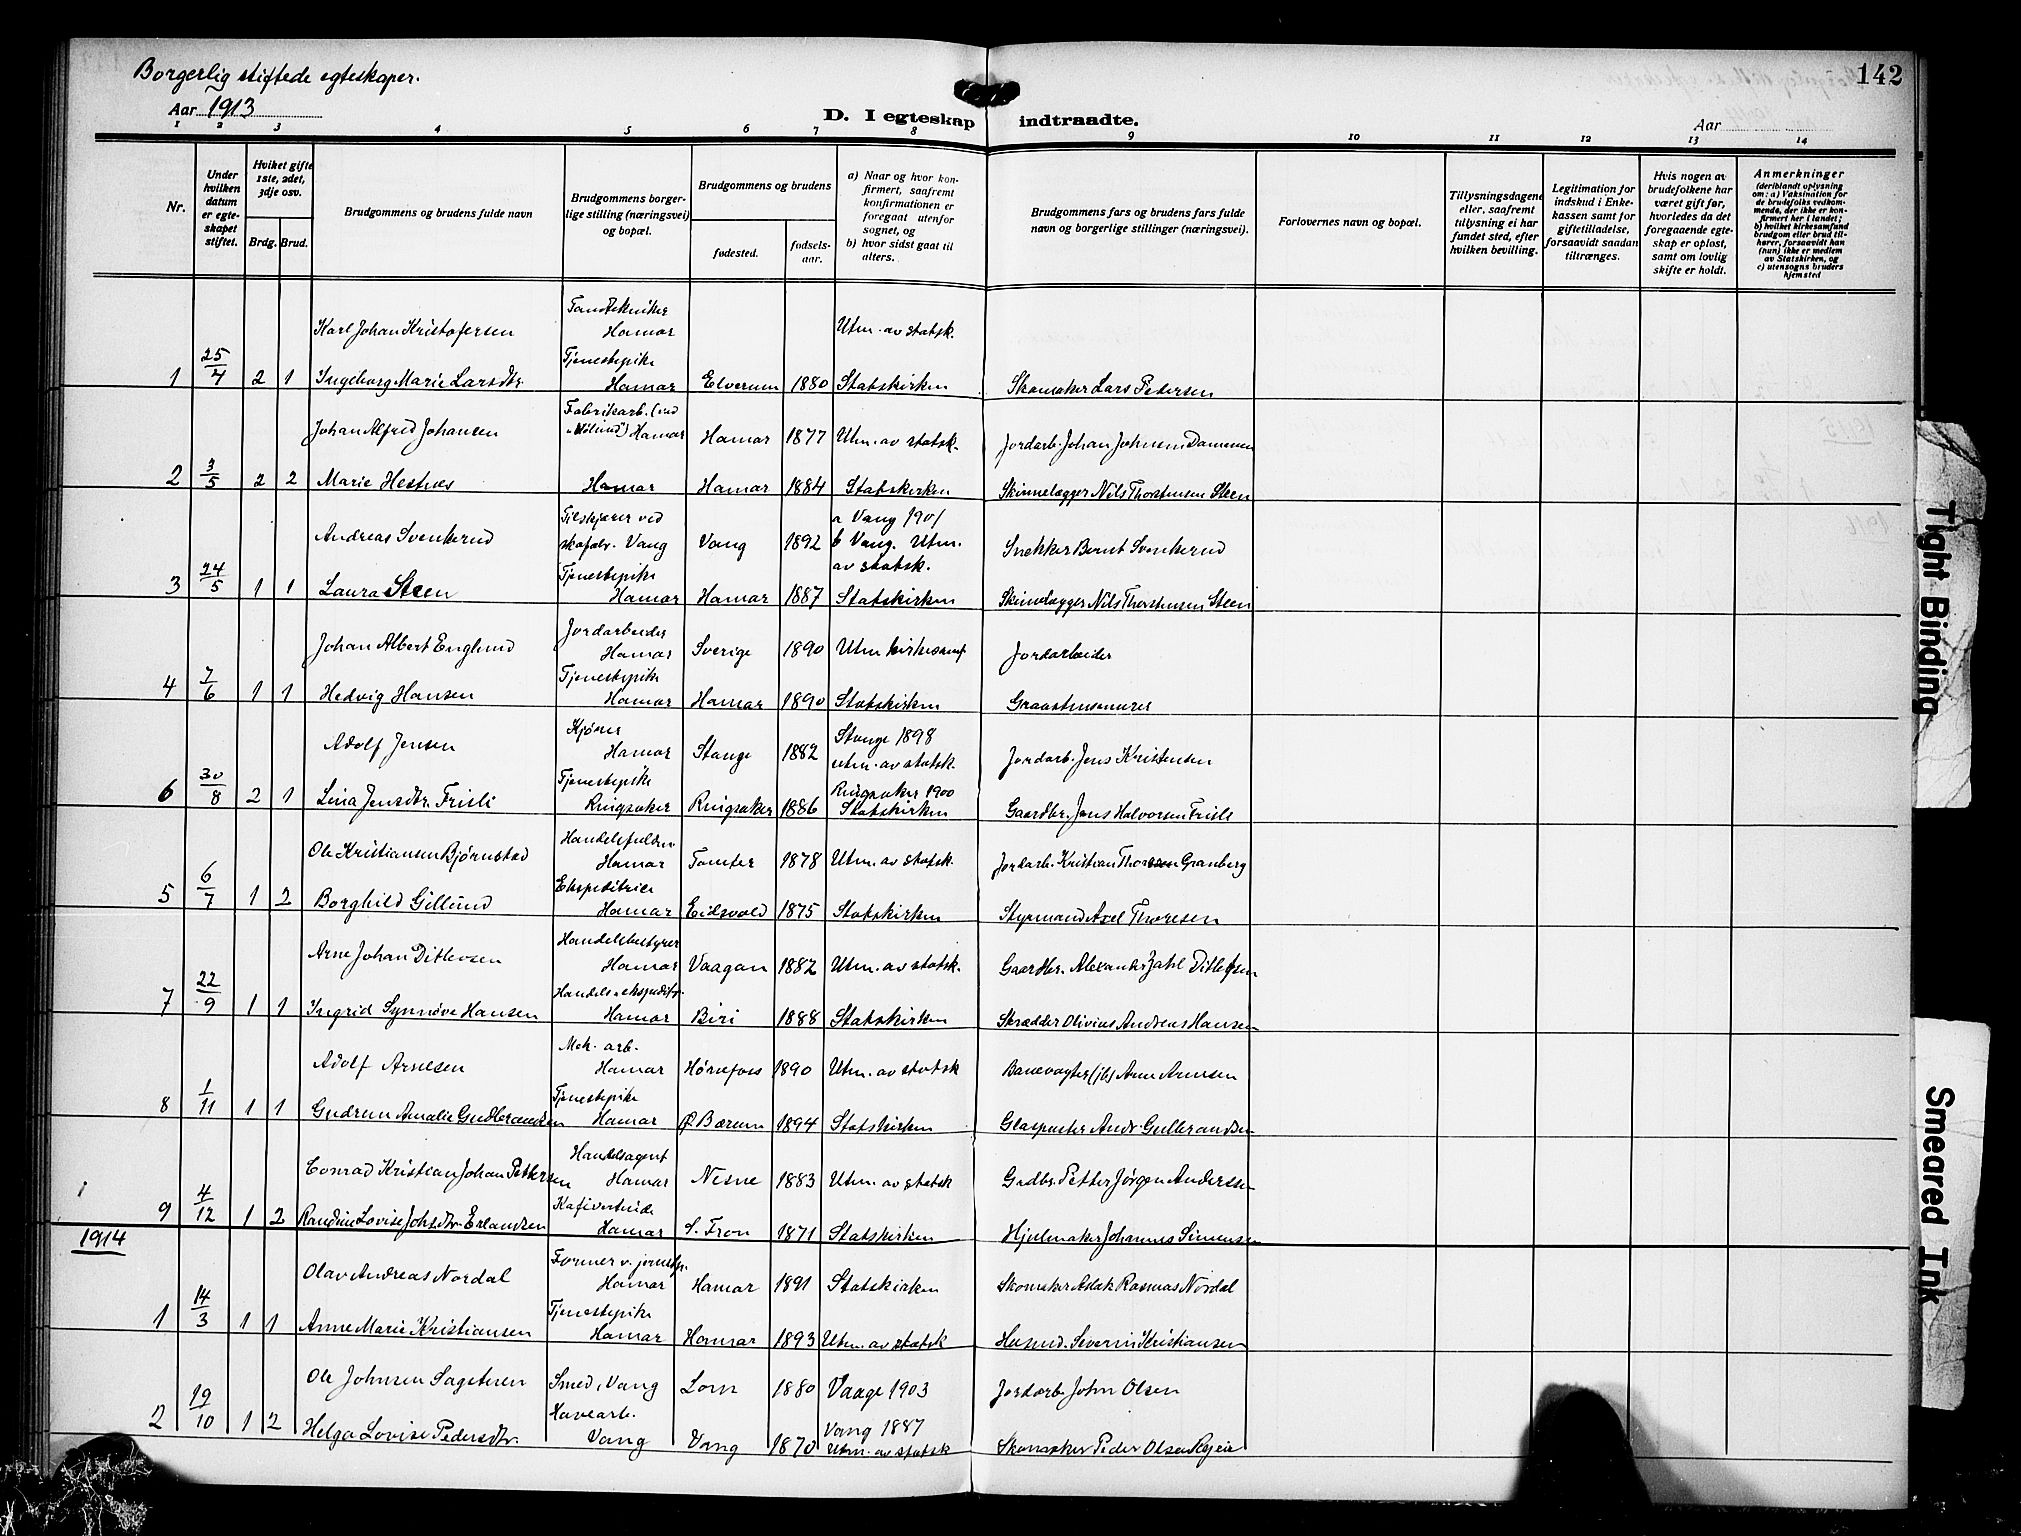 Borgerlig stiftede egteskaper.
142
Aar 1913
D. I egteskap indtraadte.
Aar
1 2 3 4 5 6 7 8 9 10 11 12 13 14
Nr.
Under hvilken datum er egteskapet stiftet.
Hvilket gifte 1ste, 2det, 3dje osv.
Brdg. Brud.
Brudgommens og brudens fulde navn
Brudgommens borgerlige stilling (næringsvei) og bopæl.
Brudgommens og brudens
fødested.
fødselsaar.
a) Naar og hvor konfirmert, saafremt konfirmationen er foregaat utenfor sognet, og
b) hvor sidst gaat til alters.
Brudgommens fars og brudens fars fulde navn og borgerlige stillinger (næringsvei).
Forlovernes navn og bopæl.
Tillysningsdagene eller, saafremt tillysning ei har fundet sted, efter hvilken bevilling.
Legitimation for indskud i Enkekassen samt for giftetilladelse, forsaavidt saadan tiltrænges.
Hvis nogen av brudefolkene har været gift før, hvorledes da det foregaaende egteskap er opløst, samt om lovlig skifte er holdt.
Anmerkninger
(deriblandt oplysning om: a) Vaksination for de brudefolks vedkommende, der ikke er konfirmert her i landet; b) hvilket kirkesamfund brudgom eller brud tilhører, forsaavidt han (hun) ikke er medlem av Statskirken, og c) utensogns bruders hjemsted
Karl Johan Kristofersen Tandtekniker Hamar Utm. av statsk.
1 25/4 2 1 Ingeborg Marie Larsdtr. Tjenestepike Hamar Elverum 1880 Statskirken Skomaker Lars Petersen
Johan Alfred Johansen Fabrikarb. (ved Hamar Hamar 1877 Utm. av statsk. Jordarb. Johan Johnsen Dammen
2 3/5 2 2 Marie Hestnes Hamar Hamar 1884 Statskirken Skinnelægger Nils Thorstensen Steen
Andreas Svenkerud Tilskjærer ved skofabr. Vang Vang 1892 a Vang 1901 b Vang. Utm. av statsk. Snekker Bernt Svenkerud
3 24/5 1 1 Laura Steen Tjenestepike Hamar Hamar 1887 Statskirken Skinnelægger Nils Thorstensen Steen
Johan Albert Englund Jordarbeider Hamar Sverige 1890 Utm kirkesamf Jordarbeider
4 7/6 1 1 Hedvig Hansen Tjenestepike Hamar Hamar 1890 Statskirken Graastensmurer
Adolf Jensen Kjører Hamar Stange 1882 Stange 1898 utm. av statsk. Jordarb. Jens Kristensen
6 30/8 2 1 Lina Jensdtr. Frisli Tjenestepike Ringsaker Ringsaker 1886 Ringsaker 1900 Statskirken Gaardbr. Jens Halvorsen Frisli
Ole Kristiansen Bjørnstad Hamar Tomter 1878 Utm. av statsk. Jordarb. Kristian Thoresen Granberg
5 6/7 1 2 Borghild Gillund Ekspeditrice Hamar Eidsvold 1875 Statskirken Styrmand Axel Thoresen
Arne Johan Ditlevsen Handelsbestyrer Hamar Vaagan 1882 Utm. av statsk. Gaardbr. Alexander Zahl Ditlefsen
7 22/9 1 1 Ingrid Synnøve Hansen Handels-ekspeditr. Hamar Biri 1888 Statskirken Skrædder Olivius Andreas Hansen
Adolf Arnesen Mek. arb. Hamar Hønefoss 1890 Utm. av statsk Banevogter (jb) Arne Arnesen
8 1/11 1 1 Gudrun Amalie Gudbrandsen Tjenestepike Hamar Ø Bærum 1894 Statskirken Glaspuster Andr Gulbrandsen
Conrad Kristian Johan Pettersen Handelsagent Hamar Nesne 1883 Utm. av statsk Grdbr. Petter Jørgen Anderssen
9 4/12 1 2 Randine Lovise Johsdtr. Erlandsen Hamar S. Fron 1871 Statskirken Hjulmaker Johannes Simensen
1914
Olav Andreas Nordal Former v. jernstøp. Hamar Hamar 1891 Statskirken Skomaker Aslak Rasmus Nordal
1 14/3 1 1 Anne Marie Kristiansen Tjenestepike Hamar Hamar 1893 Utm. av statsk Husmd. Severin Kristiansen
Ole Johnsen Sagsteren Smed, Vang Lom 1880 Vaage 1903 Jordarb. John Olsen
2 19/10 1 2 Helga Lovise Pedersdtr. Havearb. Vang Vang 1870 Vang 1887 Utm. av statsk Skomaker Peder Olsen
Tight Binding
Smeared Ink